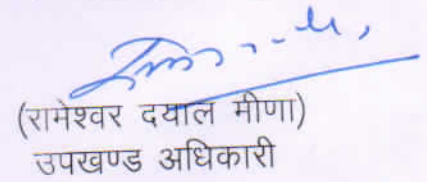 (रामेश्वर दयाल मीणा)
उपखण्ड अधिकारी